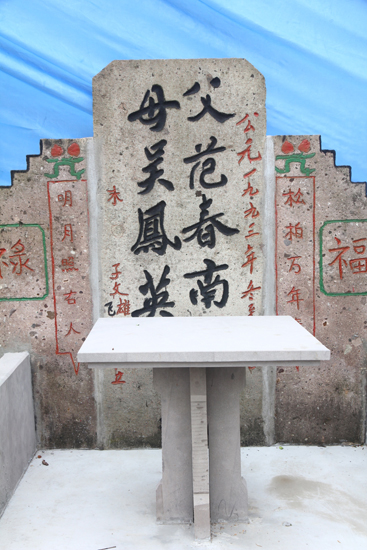 福
松柏万年
公元一九九二年冬至
父范春南
母吴鳳英
木
子文雄
飞
立
明月照右人
禄